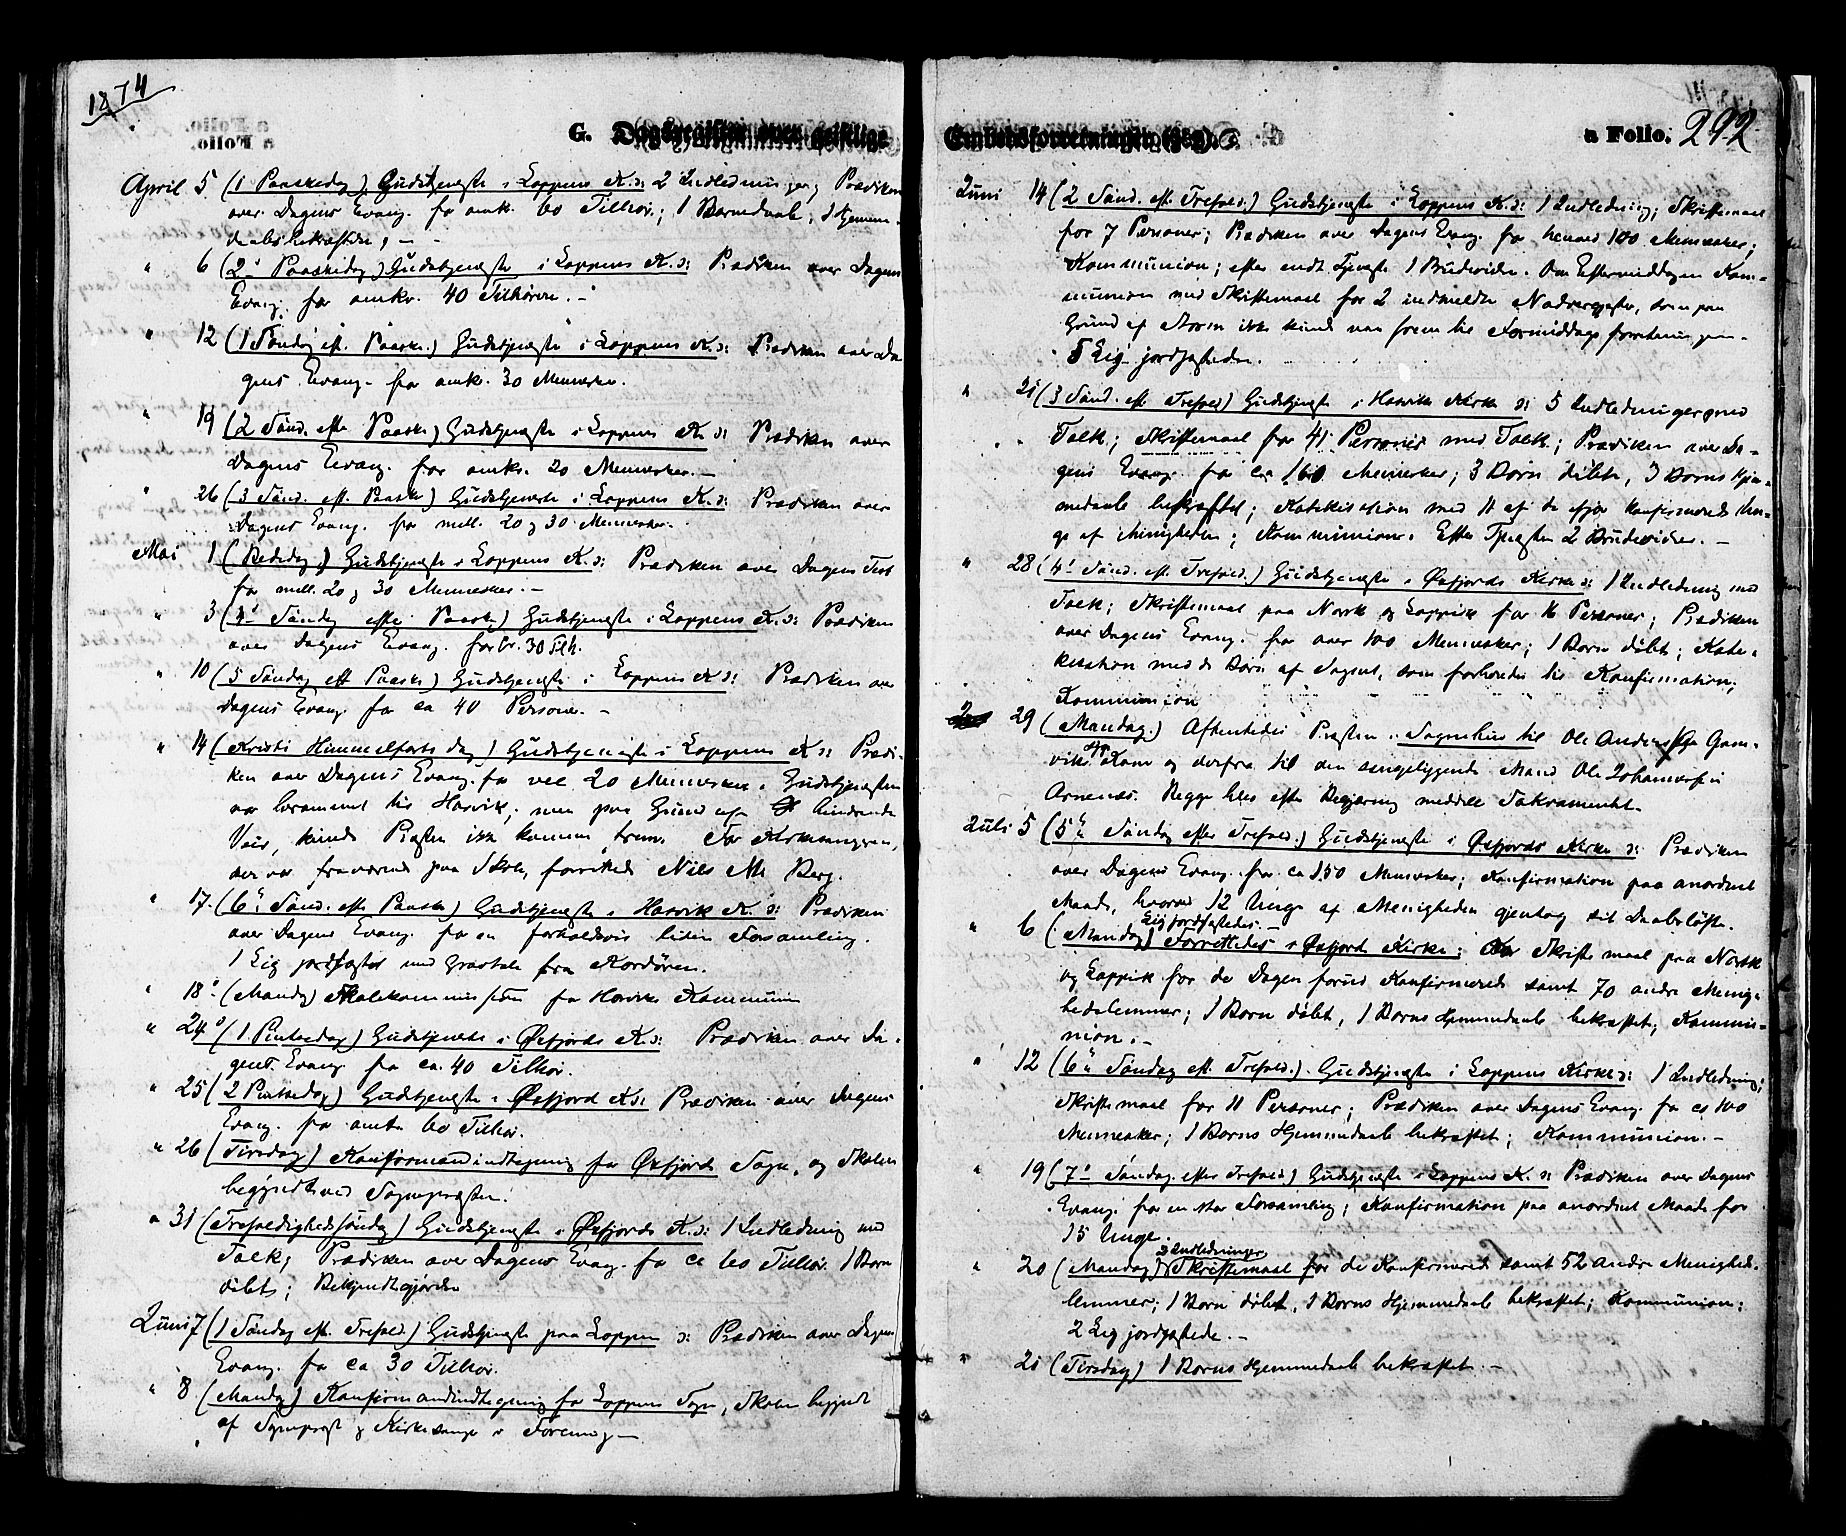 1874
G. Dagsregister over geistlige
April 5 (1 Paaskedag) Gudstjeneste i Loppens K. ɔ: 2 Indledninger; Prædiken
over Dagens Evang. for omk. 60 Tilhør.; 1 Barnedaab; 1 Hjemme-
daabsbekræftelse, –
" 6 (2' Paaskedag) Gudstjeneste i Loppens K. ɔ: Prædiken over Dagens
Evang. for omkr. 40 Tilhörere. –
" 12 (1 Söndag eft. Paaske.) Gudstjeneste i Loppens K. ɔ: Prædiken over Da
gens Evang. for omkr. 30 Mennesker.
" 19 (2 Sönd. efter Paaske) Gudstjeneste i Loppens K. ɔ: Prædiken over
Dagens Evang. for omkr. 20 Mennesker. –
" 26 (3 Sönd. eft. Paaske) Gudstjeneste i Loppens K. ɔ: Prædiken over
Dagens Evang. for mell. 20 og 30 Mennesker. –
Mai 1 (Bededag.) Gudstjeneste i Loppens K. ɔ: Prædiken over Dagens Text
for mell. 20 og 30 Mennesker. –
" 3 (4' Söndag efter Paaske) Gudstjeneste i Loppens K. ɔ: Prædiken
over Dagens Evang. for br. 30 Tilh.
" 10 (5 Söndag eft Paaske) Gudstjeneste i Loppens K ɔ: Prædiken over
Dagens Evang. for ca 40 Personer. –
" 14 (Kristi Himmelfarts dag) Gudstjeneste i Loppens K ɔ: Prædi-
ken over Dagens Evang. for vel 20 Mennesker. Gudstjenesten
var berammet til Hasvik; men paa Grund af hindrende
Veir, kunde Præsten ikke komme frem. For Kirkesangeren,
der var fraværende paa Skole, forrettede Nils M. Berg.
" 17. (6" Sönd. eft. Paaske) Gudstjeneste i Hasvik K. ɔ: Prædiken
over Dagens Evang. for en forholdsvis liden Forsamling.
1 Lig jordfæstet med Gravtale fra Kordören.
" 18' (Mandag) Skolekommission for Hasvik Kommune
" 24' (1. Pintsedag) Gudstjeneste i Øxfjords K. ɔ: Prædiken over Da-
gens Evang. for ca. 40 Tilhør.
" 25 (2 Pintsedag) Gudstjeneste i Øxfjord K ɔ: Prædiken over Dagens
Evang. for omtr. 60 Tilhør.
" 26 (Tirsdag) Konfirmandindtegning for Øxfjord Sogn, og Skolen
begyndt ved Sognepræsten.
" 31 (Trefoldighedssöndag) Gudstjeneste i Øxfjords K. ɔ: 1 Indledning med
Tolk; Prædiken over Dagens Evang. for ca 60 Tilhør. 1 Barn
döbt; Bekjendtgjörelse
Juni 7 (1 Söndag eft. Trefold.) Gudstjeneste paa Loppen ɔ: Prædiken over Dagens
Evang. for ca 30 Tilhör.
" 8 (Mandag) Konfirmandindtegning for Loppens Sogn, Skolen begyndt
af Sognepræst og Kirkesanger i Forening –
Embedsforretninger (Sög).
a Folio. 292
Juni 14 (2 Sönd. eft. Trefold.) Gudstjeneste i Loppens K. ɔ: 1 Indledning; Skriftemaal
for 7 Personer; Prædiken over Dagens Evang. for henved 100 Mennesker;
Kommunion; efter endt Tjeneste 1 Brudevielse. Om Eftermiddagen Kom-
munion med Skriftemaal for 2 indmeldte Nadvergjester, som paa
Grund af Storm ikke kunde naa frem til Formiddags forretningen. –
5 Lig jordfæstede.
" 21 (3 Sönd. eft Trefold) Gudstjeneste i Hasvik Kirke ɔ: 5 Indledninger med
Tolk; Skriftemaal for 41 Personer med Tolk; Prædiken over Da-
gens Evang. for ca 160 Mennesker; 3 Börn döbte, 3 Börns Hjem-
medaab bekræftet; Katekisation med 11 af de ifjor konfirmerede Un-
ge af Menigheden; Kommunion. Efter Tjenesten 2 Brudevielser. –
" 28 (4' Sönd. eft. Trefold.) Gudstjeneste i Øxfjords Kirke ɔ: 1 Indledning med
Tolk; Skriftemaal paa Norsk og Lappisk for 16 Personer; Prædiken
over Dagens Evang. for over 100 Mennesker; 1 Barn döbt; Kate-
kisation med de Börn af Sognet, som forberedes til Konfirmation;
Kommunion
29 (Mandag.) Afhentedes Præsten i Sognebud til Ole Anders Gam-
vik Kone og derfra til den sengeliggende Mand Ole Johannesen i
Arnenæs. Begge blev efter Begjæring meddelt Sakramentet.
Juli 5 (5" Söndag efter Trefold.) Gudstjeneste i Øxfjords Kirke ɔ: Prædiken
over Dagens Evang. for ca 150 Mennesker; Konfirmation paa anordnet
Maade, hvorved 12 Unge af Menigheden gjentog sit Daabslöfte.
Lig jordfæstedes. –
" 6 (Mandag) Forrettedes i Øxfjord Kirke; Skriftemaal paa Norsk
og Lappisk for de Dagen forud Konfirmerede samt 70 andre Menig-
hedslemmer; 1 Barn döbt, 1 Barns Hjemmedaab bekræftet; Kommu-
nion. –
" 12 (6" Söndag eft. Trefold.) Gudstjeneste i Loppens Kirke ɔ: 1 Indledning;
Skriftemaal for 11 Personer; Prædiken over Dagens Evang. for ca 100
Mennesker; 1 Barns Hjemmedaab bekræftet; Kommunion. –
" 19 (7' Söndag efter Trefold) Gudstjeneste i Loppens K. ɔ: Prædiken over Dagens
Evang. for en stor Forsamling; Konfirmation paa anordnet Maade for
15 Unge.
3 Indledninger
" 20 (Mandag) Skriftemaal for de Konfirmerede samt 52 andre Menigheds-
lemmer; 1 Barn döbt, 1 Barns Hjemmedaab bekræftet; Kommunion;
2 Lig jordfæstede. –
" 21 (Tirsdag) 1 Barns Hjemmedaab bekræftet. –